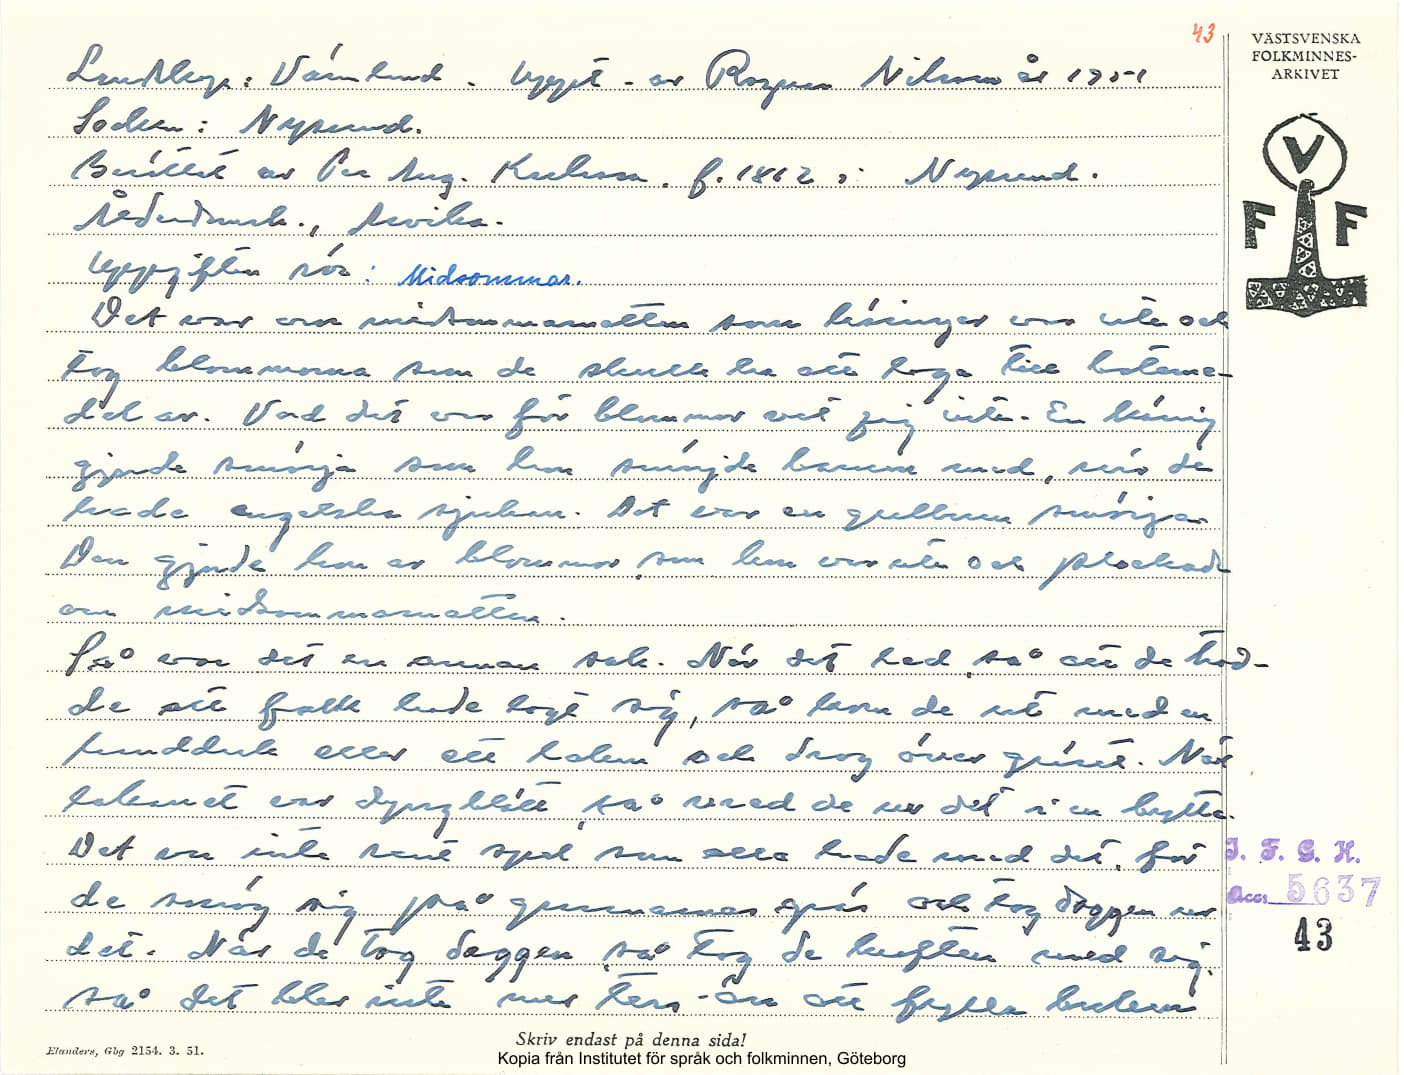 43
VÄSTSVENSKA
FOLKMINNES-
ARKIVET
V
F F
Landskap: Värmland. Uppt. av Ragnar Nilsson år 1951
Socken: Nysund.
Berättat av Per Aug. Karlsson, f. 1862 i Nysund.
Ålderdomsh., Arvika.
Uppgiften rör: Midsommar.
Det var om midsommarnatten som käringar var ute och
tog blommorna som de skulle ha att laga till boteme-
del av. Vad det var för blommor vet jag inte. En käring
gjorde smörja som hon smörjde barnen med, när de
hade engelska sjukan. Det var en gulbrun smörja.
Den gjorde hon av blommor som hon var ute och plockade
om midsommarnatten.
Så var det en annan sak. När det led så att de trod-
de att folk hade lagt sig, så kom de ut med en
handduk eller ett lakan och drog över gräset. När
lakanet var dyngblött, så vred de ur det i en bytta.
Det var inte rent spel som alla hade med det, för
de smög sig på grannarnas gräs och tog daggen ur
det. När de tog daggen så tog de kraften med sig,
så det blev inte mer än att fylla
J. F. G. H.
Acc. 5637
43
Skriv endast på denna sida!
Elanders, Gbg 2154. 3. 51.
Kopia från Institutet för språk och folkminnen, Göteborg